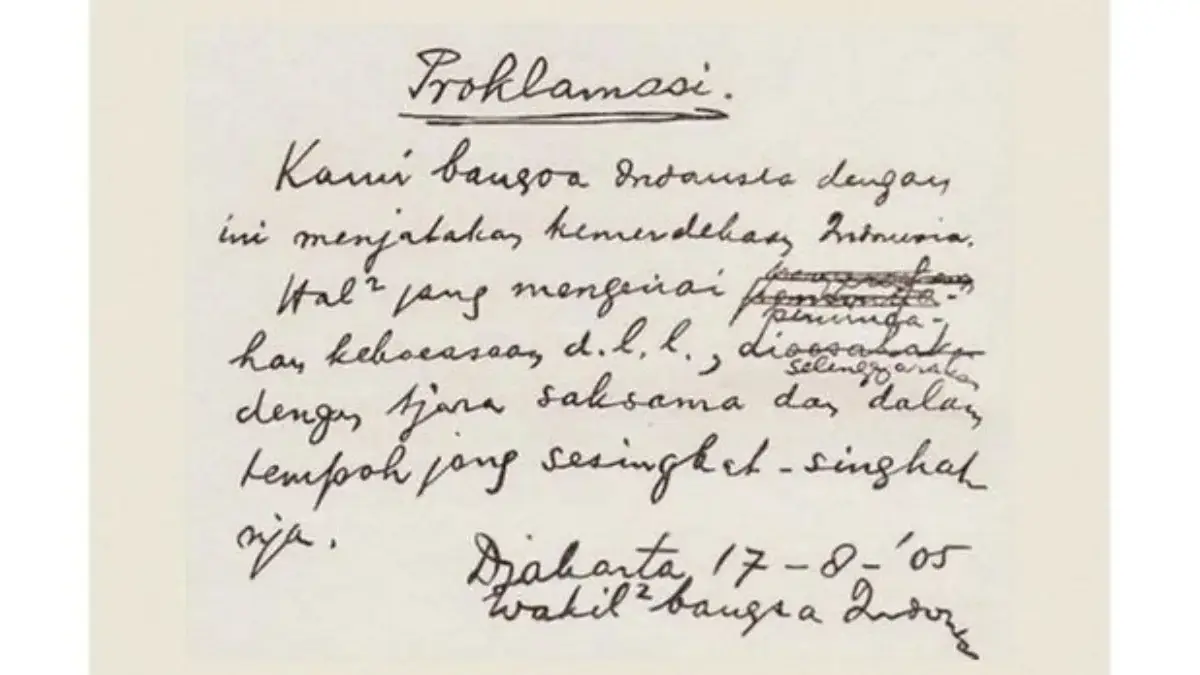 Proklamasi.
Kami bangsa Indonesia dengan
ini menjatakan kemerdekaan Indonesia.
Hal² jang mengenai
peminda-
han kekoeasaan, d.l.l., di
selenggarakan
dengan tjara saksama dan dalam
tempoh jang sesingkat-singkat
nja.
Djakarta 17-8-'05
Wakil² bangsa Indonesia